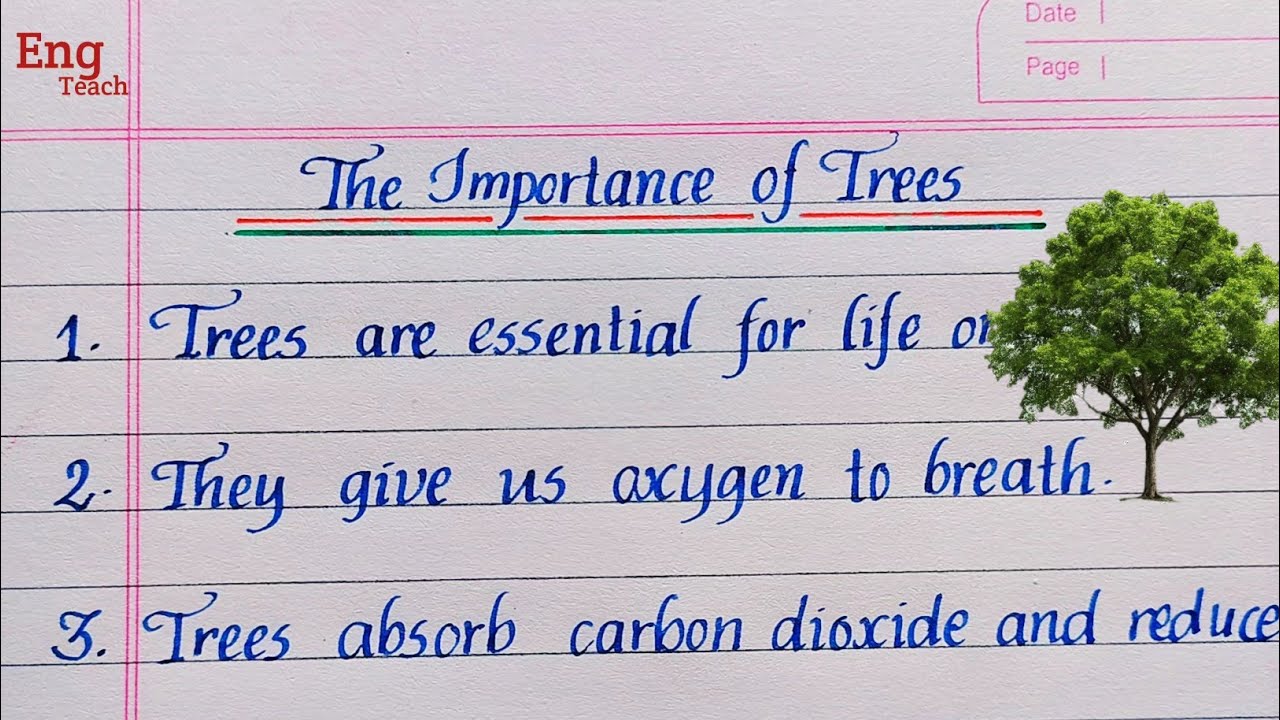 Eng
Teach
Date
Page
The Importance of Trees
1. Trees are essential for life on
2. They give us oxygen to breath.
3. Trees absorb carbon dioxide and reduce